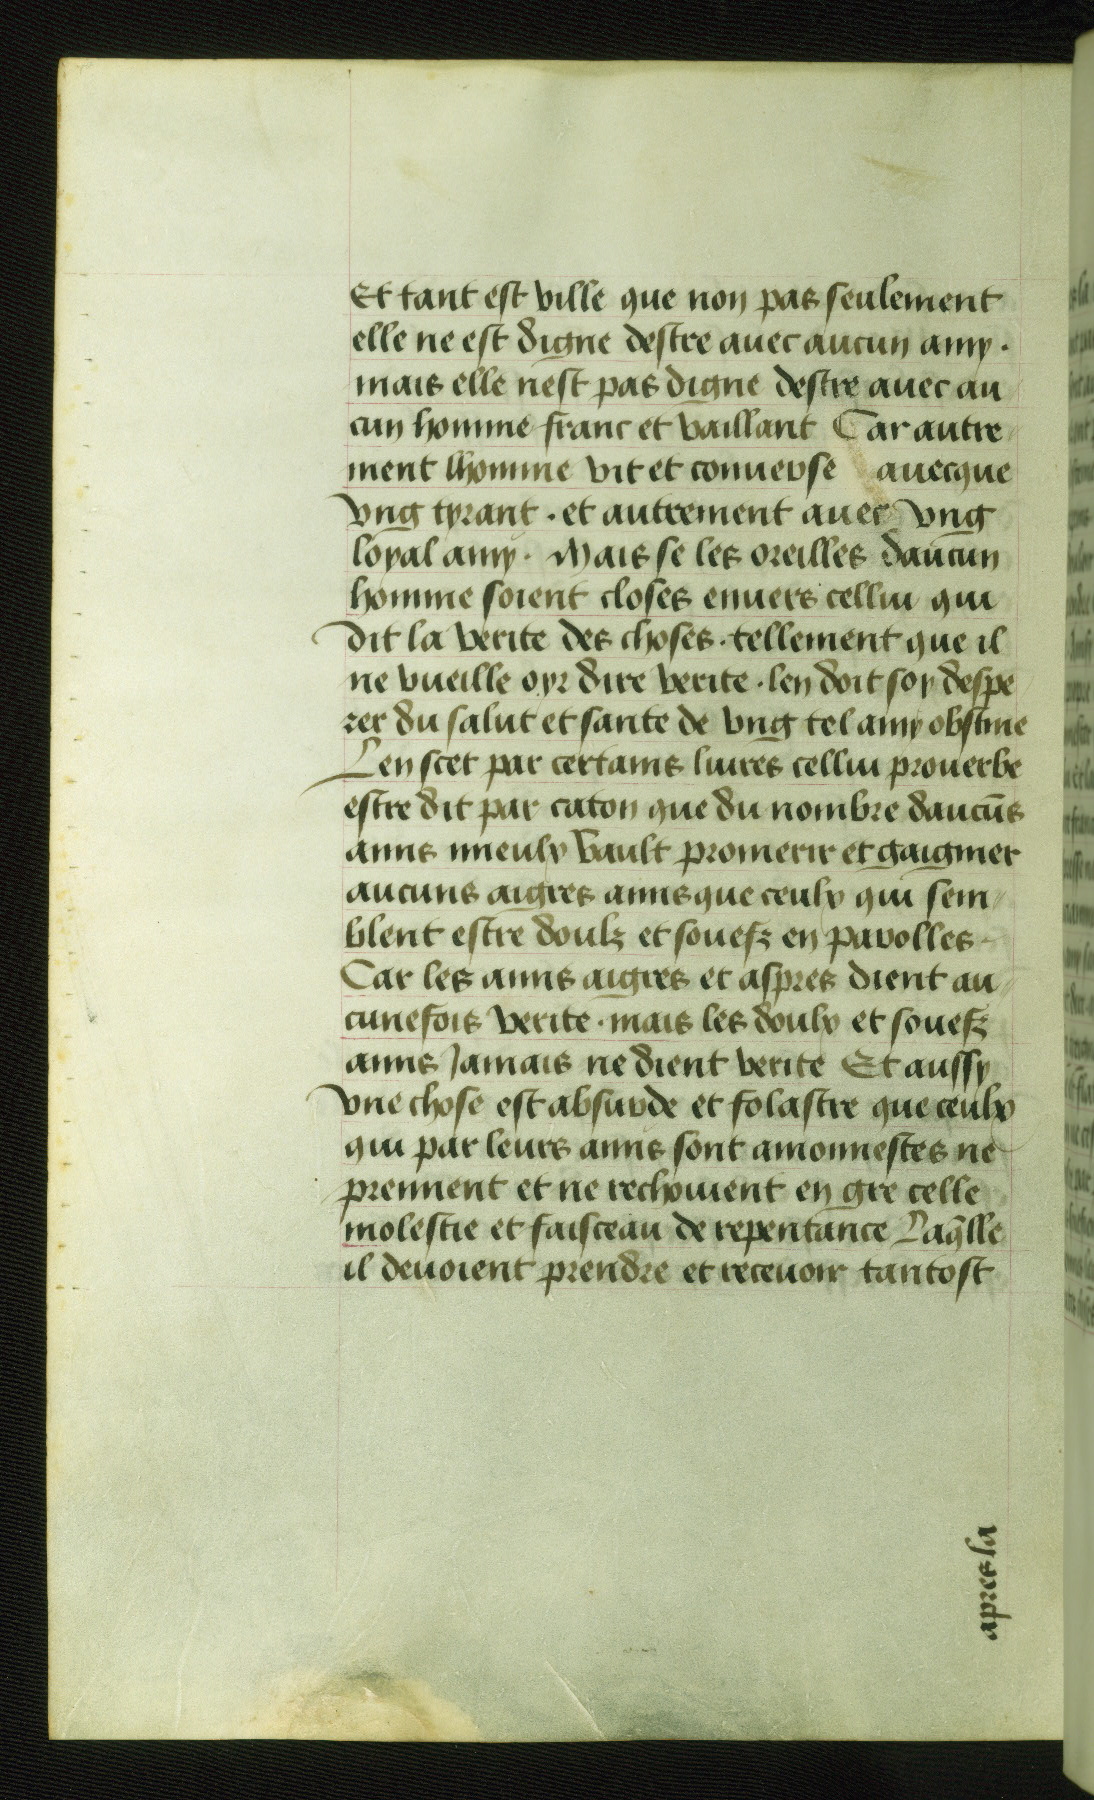 Et tant est ville que non pas seulement
elle ne est digne destre auec aucun amy.
mais elle nest pas digne destre auec au
cun homme franc et vaillant Car autre
ment lhomme vit et conuerse auecque
vng tyrant. et autrement auec vng
loyal amy. Mais se les oreilles daucun
homme soient closes enuers cellui qui
dit la verite des choses. tellement que il
ne vueille oyr dire verite. len doit soy despe
rer du salut et sante de vng tel amy obstine
Len scet par certains liures cellui prouerbe
estre dit par caton que du nombre daucūs
amis mieulx vault promerir et gaignier
aucuns aigres amis que ceulx qui sem
blent estre doulz et souefz en parolles.
Car les amis aigres et aspres dient au
cunefois verite. mais les doulx et souefz
amis Jamais ne dient verite Et aussy
vne chose est absurde et folastre que ceulx
qui par leurs amis sont amonnestes ne
prennent et ne rechoiuent en gre celle
molestie et faisceau de repentance Laq̄lle
il deuoient prendre et receuoir tantost
apres la